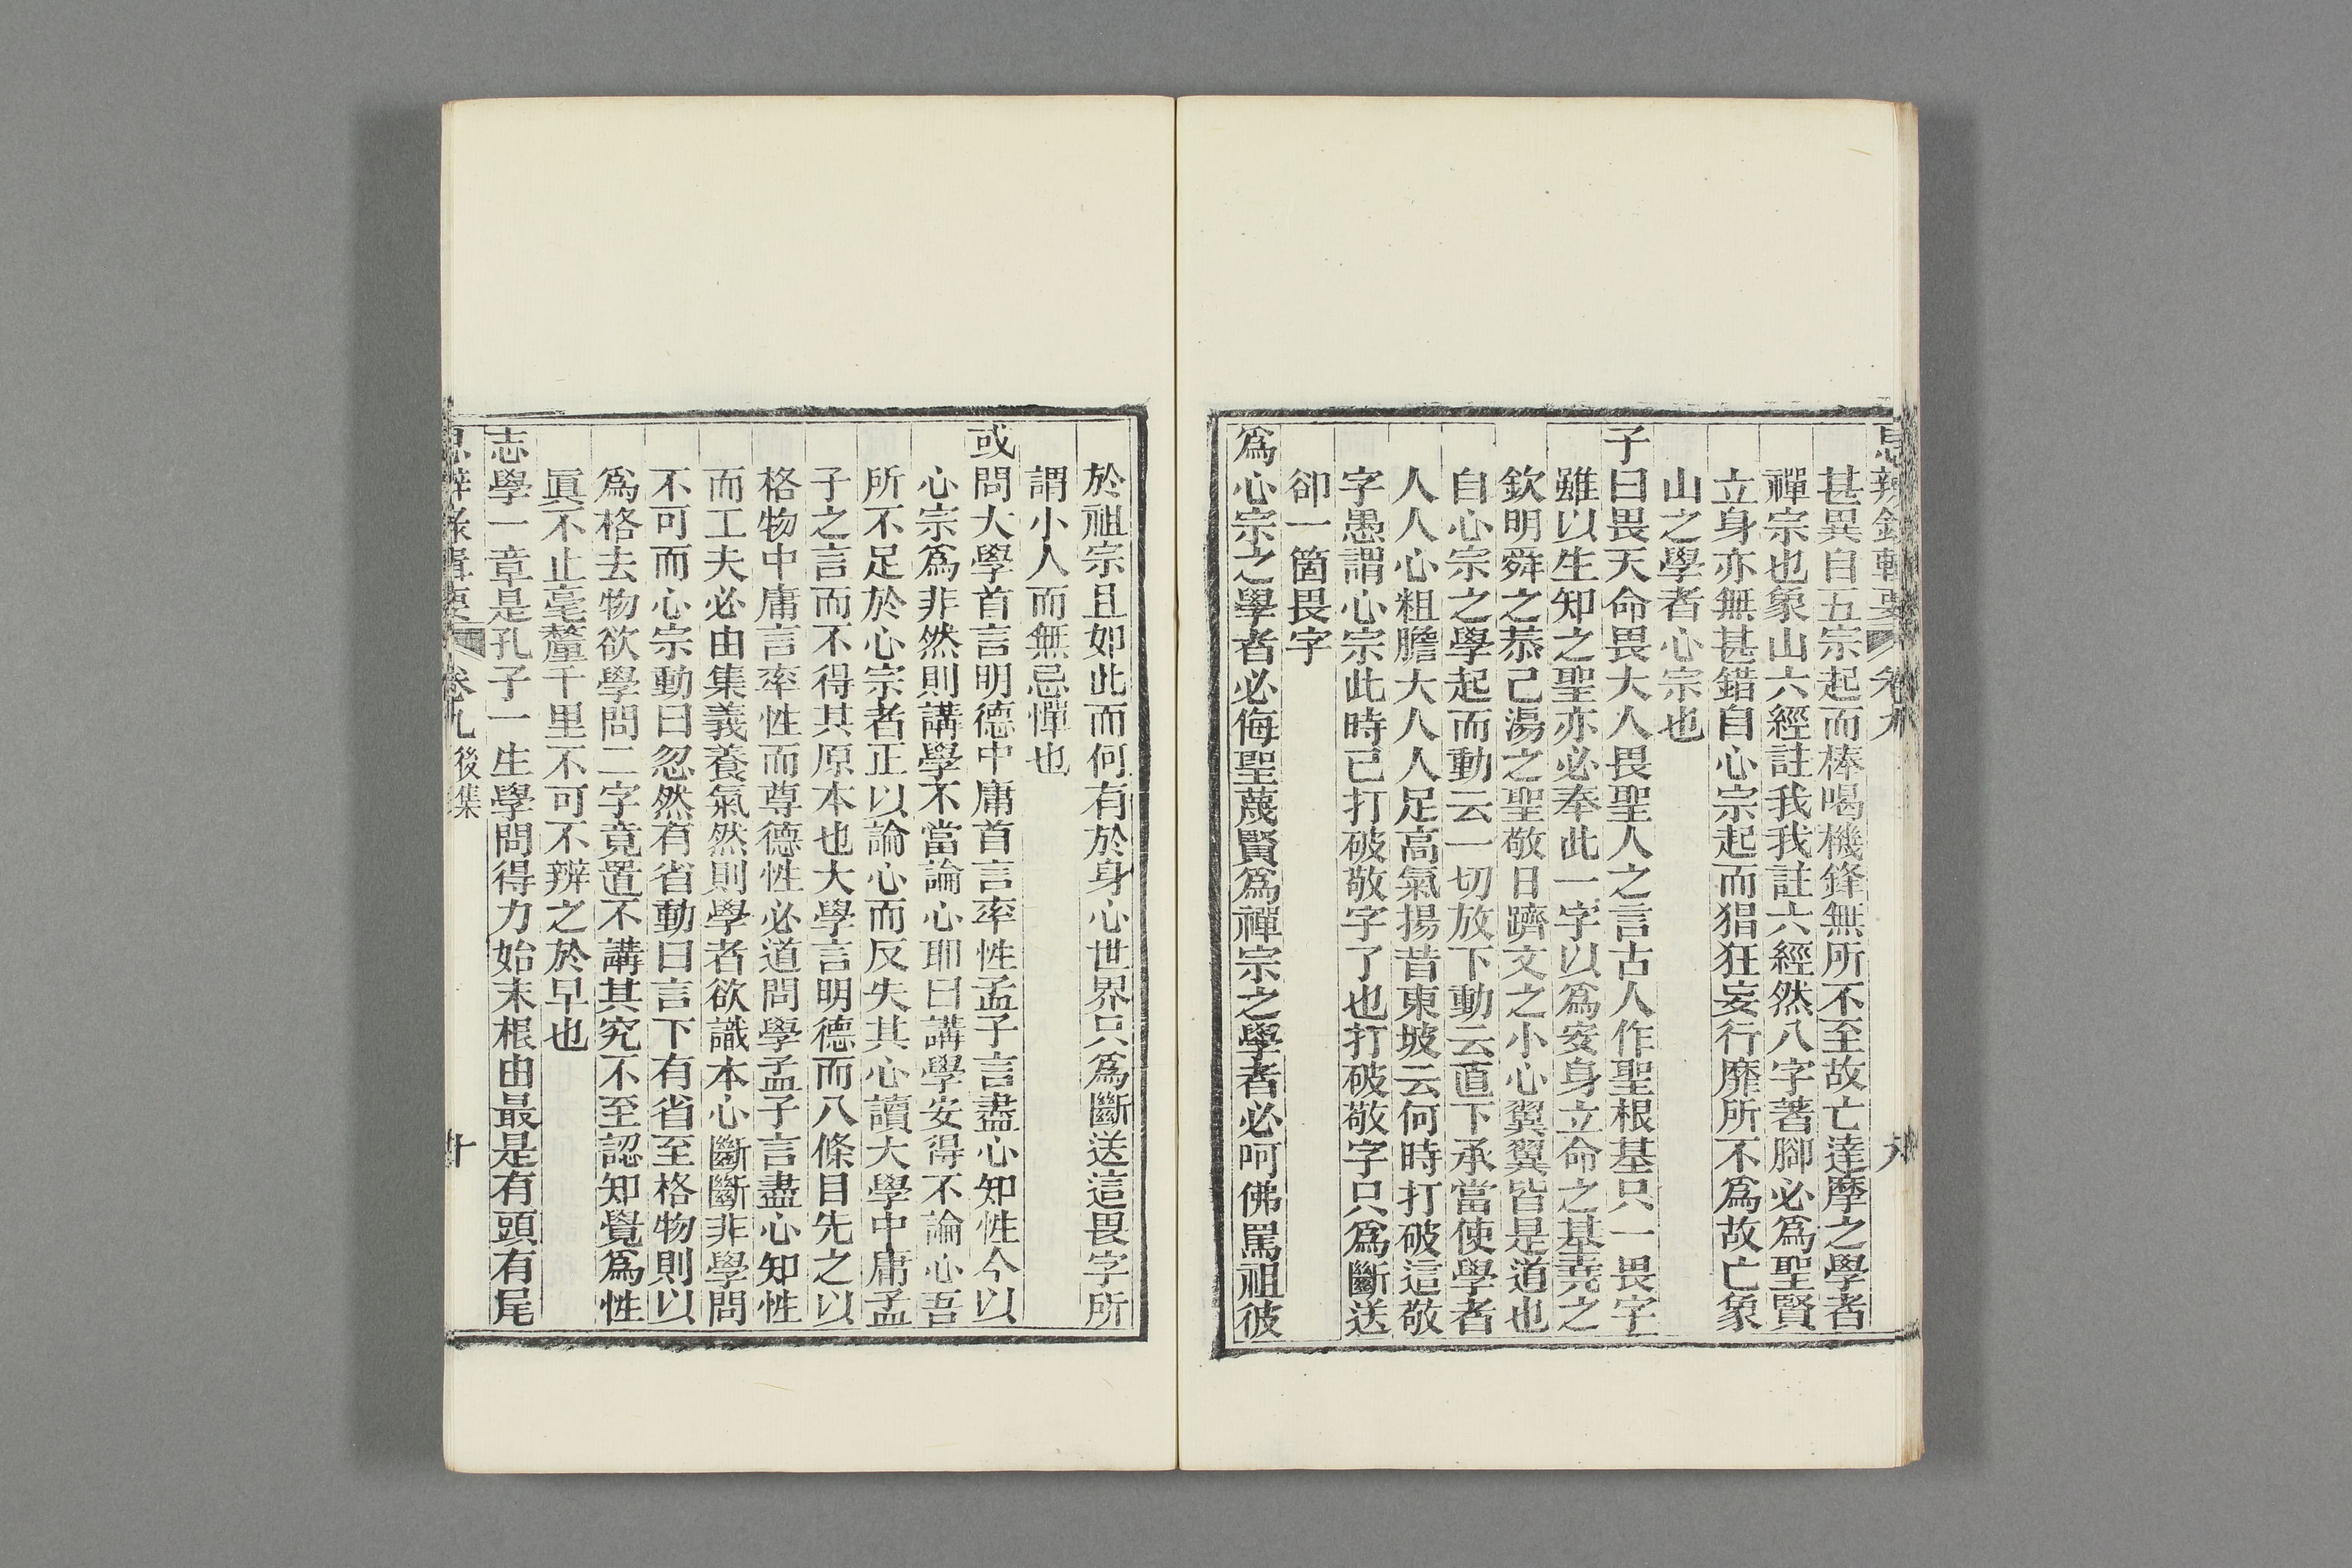 思辨錄輯要 卷九 九
甚異自五宗起而棒喝機鋒無所不至故亡達摩之學者
禪宗也象山六經註我我註六經然八字著腳必為聖賢
立身亦無甚錯自心宗起而猖狂妄行靡所不為故亡象
山之學者心宗也
子曰畏天命畏大人畏聖人之言古人作聖根基只一畏字
雖以生知之聖亦必奉此一字以為安身立命之基堯之
欽明舜之恭己湯之聖敬日躋文之小心翼翼皆是道也
自心宗之學起而動云一切放下動云直下承當使學者
人人心粗膽大人人足高氣揚昔東坡云何時打破這敬
字愚謂心宗此時已打破敬字了也打破敬字只為斷送
卻一箇畏字
為心宗之學者必侮聖蔑賢為禪宗之學者必呵佛罵祖彼
於祖宗且如此而何有於身心世界只為斷送這畏字所
謂小人而無忌憚也
或問大學首言明德中庸首言率性孟子言盡心知性今以
心宗為非然則講學不當論心耶曰講學安得不論心吾
所不足於心宗者正以論心而反失其心讀大學中庸孟
子之言而不得其原本也大學言明德而八條目先之以
格物中庸言率性而尊德性必道問學孟子言盡心知性
而工夫必由集義養氣然則學者欲識本心斷斷非學問
不可而心宗動曰忽然有省動曰言下有省至格物則以
為格去物欲學問二字竟置不講其究不至認知覺為性
眞不止毫釐千里不可不辨之於早也
志學一章是孔子一生學問得力始末根由最是有頭有尾
思辨錄輯要 卷九 後集 十